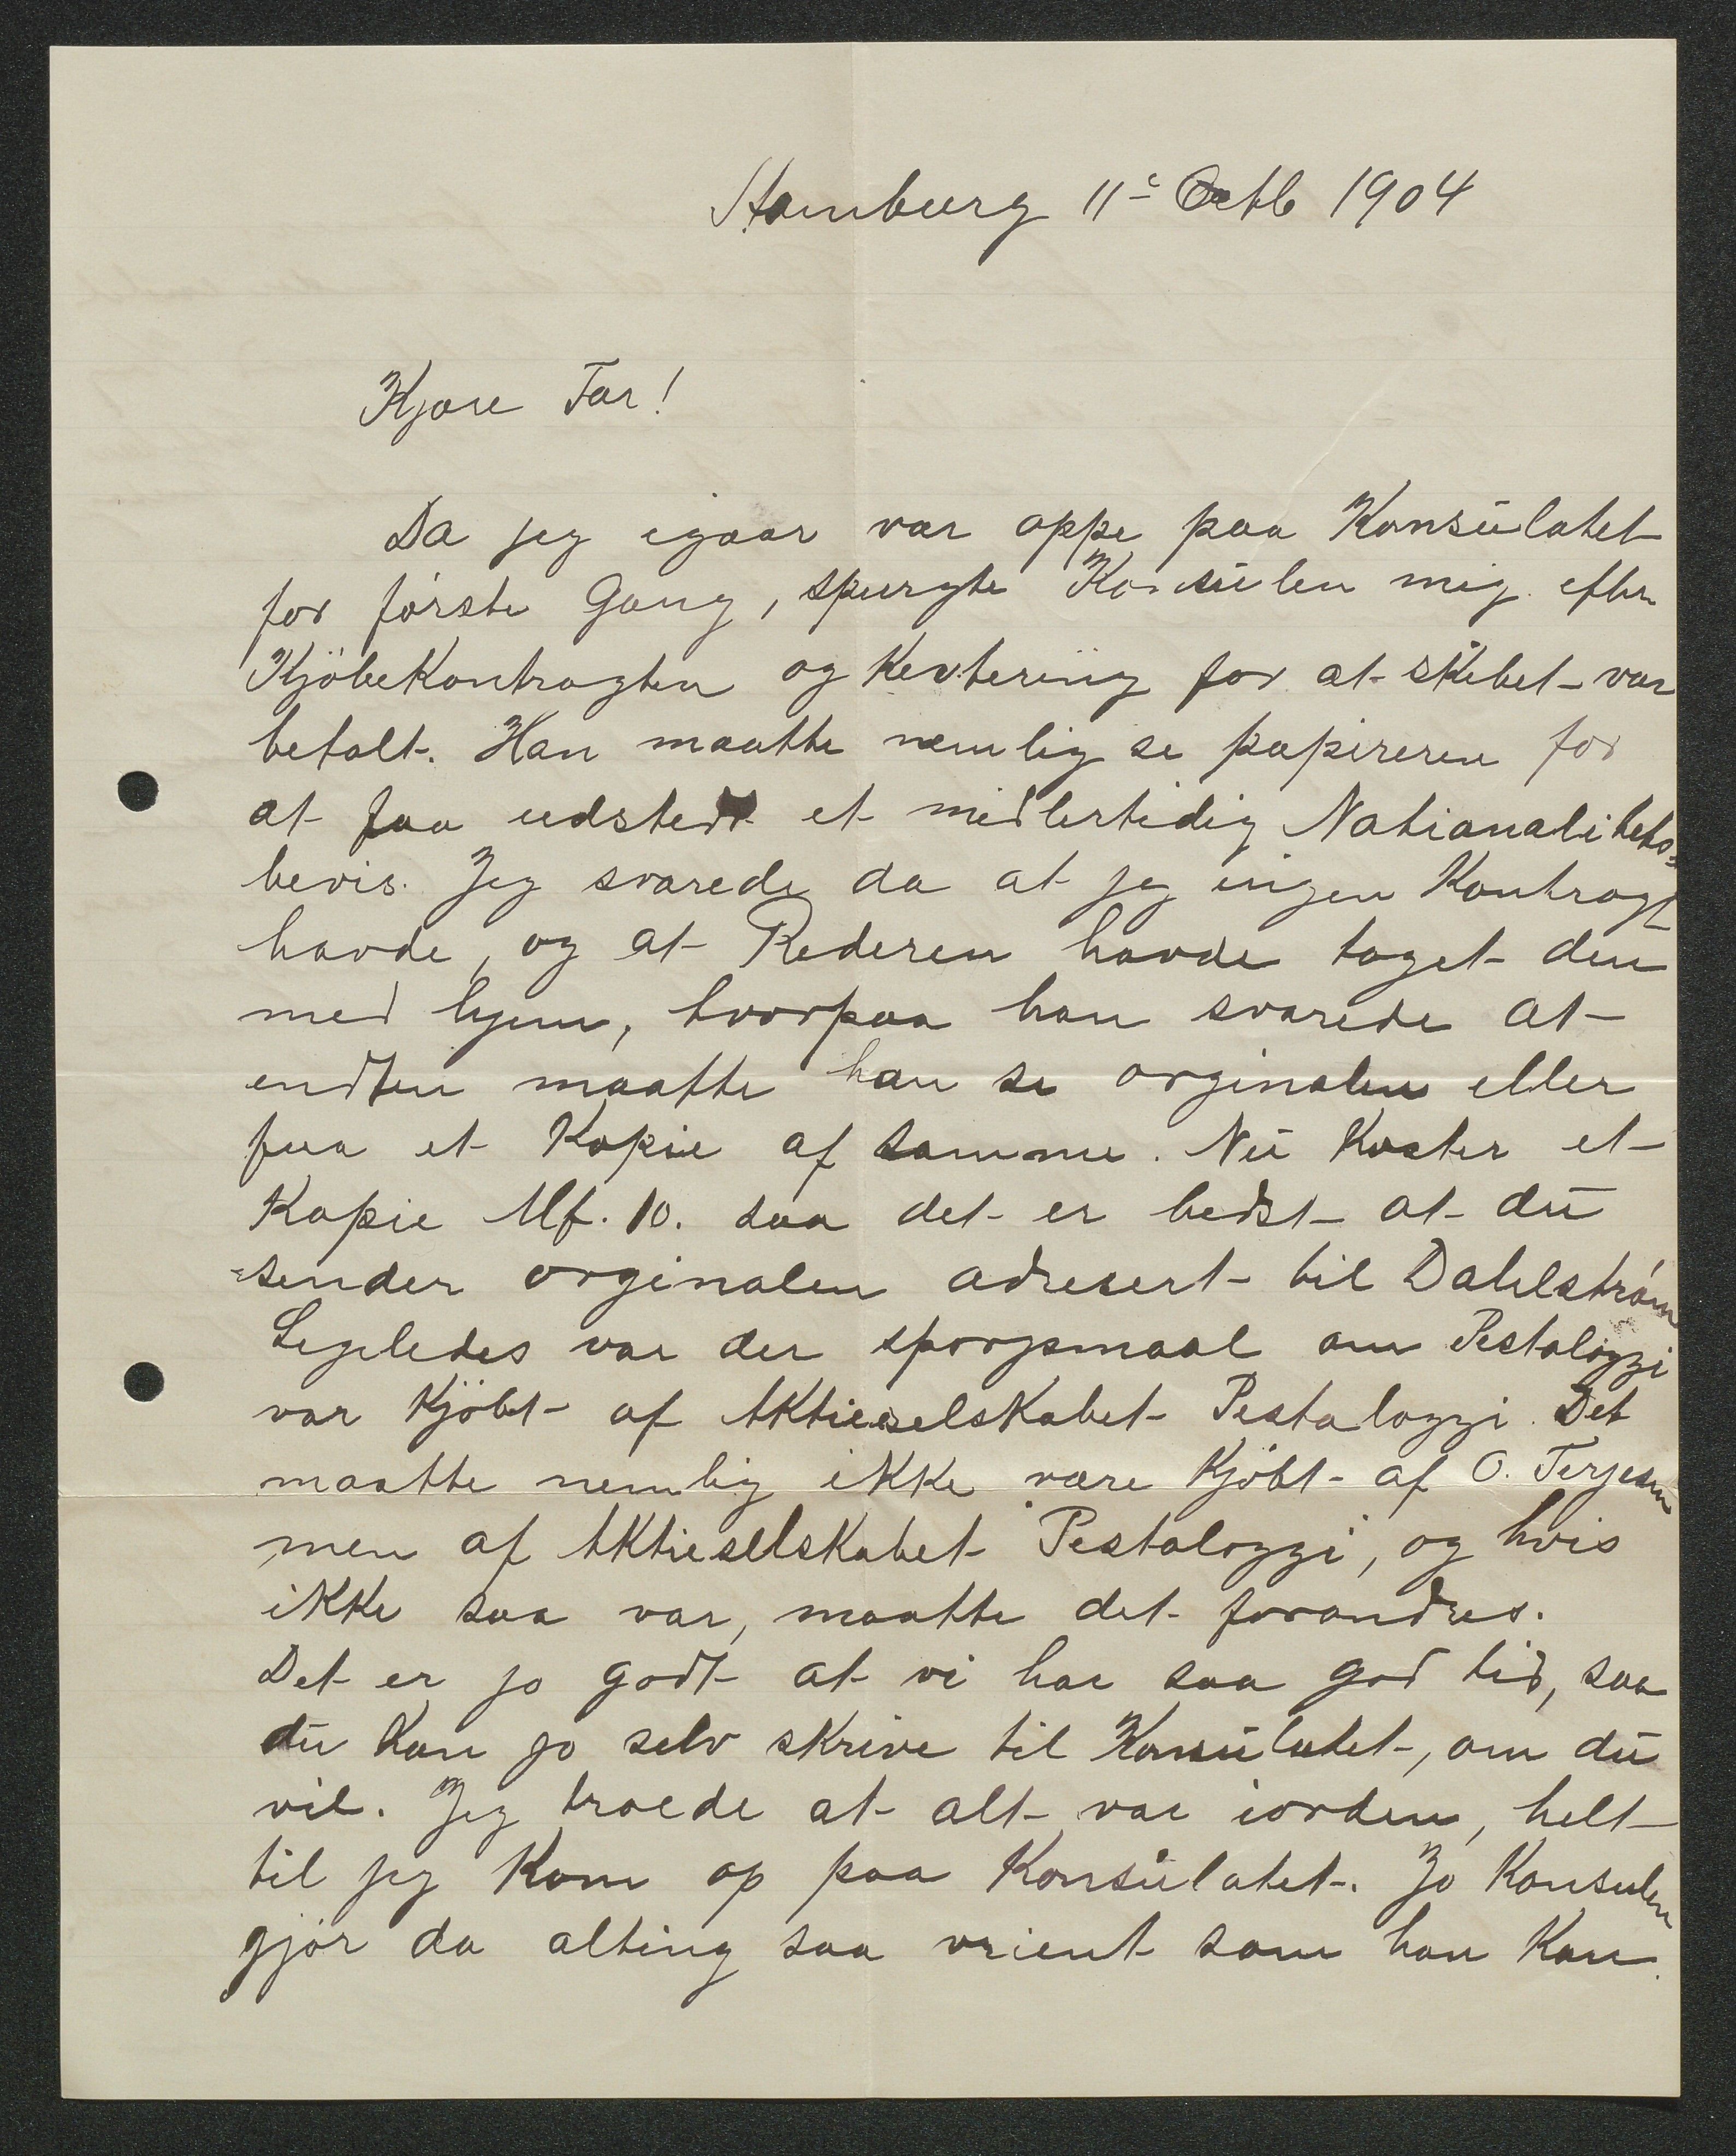 Hamburg 11te Octb 1904
Kjære Far!
Da jeg igaar var oppe paa Konsulatet
for første Gang, spurgte Konsulen mig efter
Kjöbekontragten og Kvitering for at skibet var
betalt. Han maatte nemlig se papirerene for
at faa udstedt et midlertidig Nationalitets=
bevis. Jeg svarede da at jeg ingen Kontragt
havde, og at Rederen havde taget den
med hjem, hvorpaa han svarede at
endten maatte han se orginalen eller
faa et Kopie af samme. Nu Koster et
Kopie Mk. 10. saa det er bedst at du
sender orginalen adresert til Dahlström
Ligeledes var der sporgsmaal om Pestalozzi
var Kjöbt af Aktieselskabet Pestalozzi. Det
maatte nemlig ikke være Kjöbt af O. Terjesen
men af Aktieselskabet Pestalozzi, og hvis
ikke saa var, maatte det forandres.
Det er jo godt at vi har saa god tid, saa
du kan jo selv skrive til Konsulatet, om du
vil. Jeg troede at alt var iorden, helt
til jeg Kom op paa Konsulatet. Jo Konsulen
gjör da alting saa vrient som han Kan.